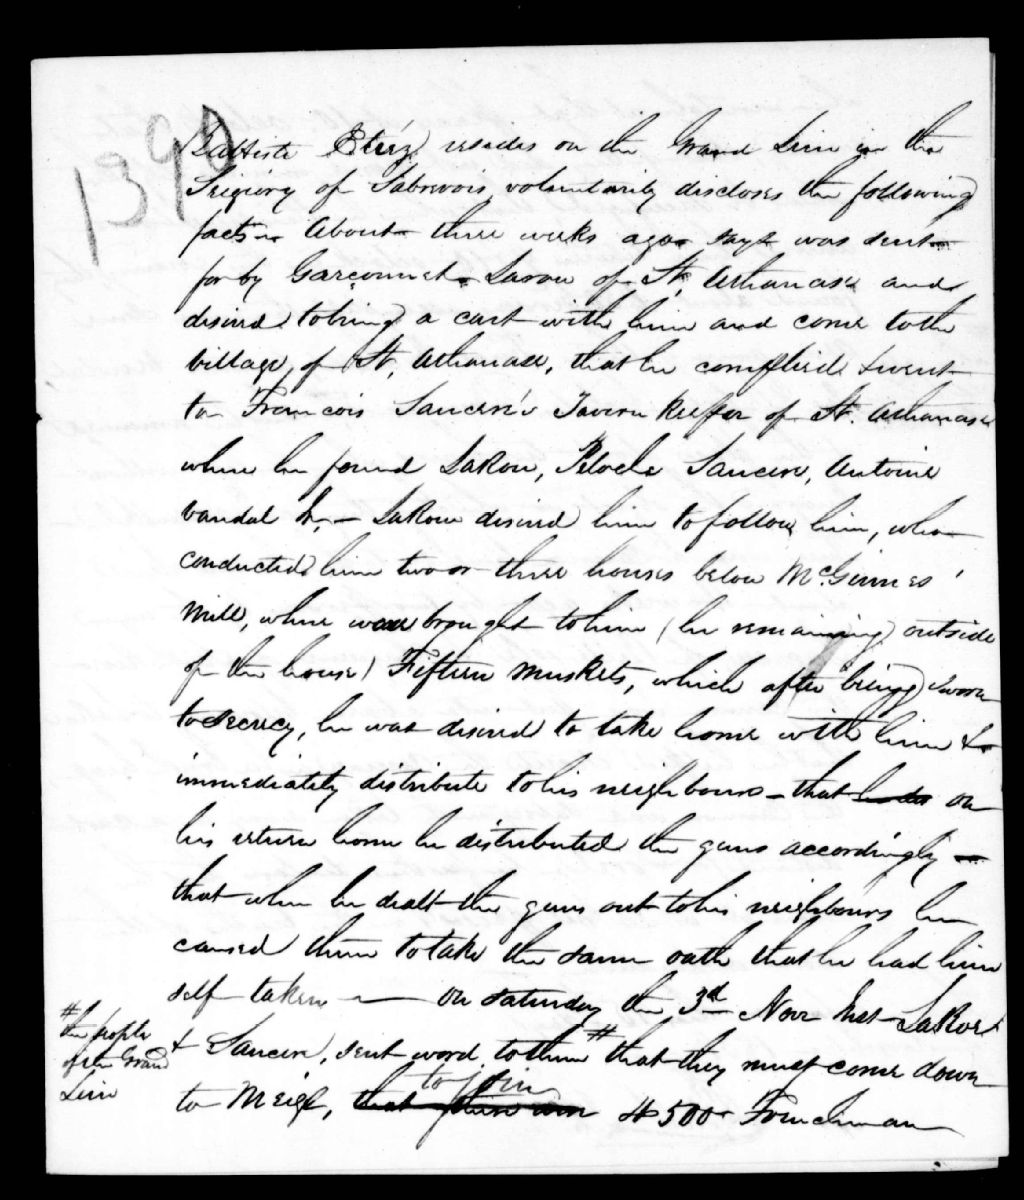 1390
Battiste resides on the Grand Line in the
Seigiory of Sabrevois voluntarily discloses the following
facts — About three weeks ago says was sent
for by Garconnet Larou of St Athanase and
desired to bring a cart with him and come to the
village of St. Athanase, that he complied & went
to Francois Tavern Keeper of St. Athanase
where he found LaRou, Antoine
Vandal Jr. — LaRou desired him to follow him, who
conducted him two or three houses below McGinnes'
Mill, where was brought to him (he remaining outside
of the house) Fifteen muskets, which after being sworn
to secrecy, he was desired to take home with him &
immediately distribute to his neighbours — that on
his return home he distributed the guns accordingly —
that when he dealt the guns out to his neighbours he
caused them to take the same oath that he had him
self taken — on saturday the 3rd Novr last LaRou
& sent word to them # that they must come down
# the people
of the Grand
Line
to join
to Meigs, 4 500 Frenchman